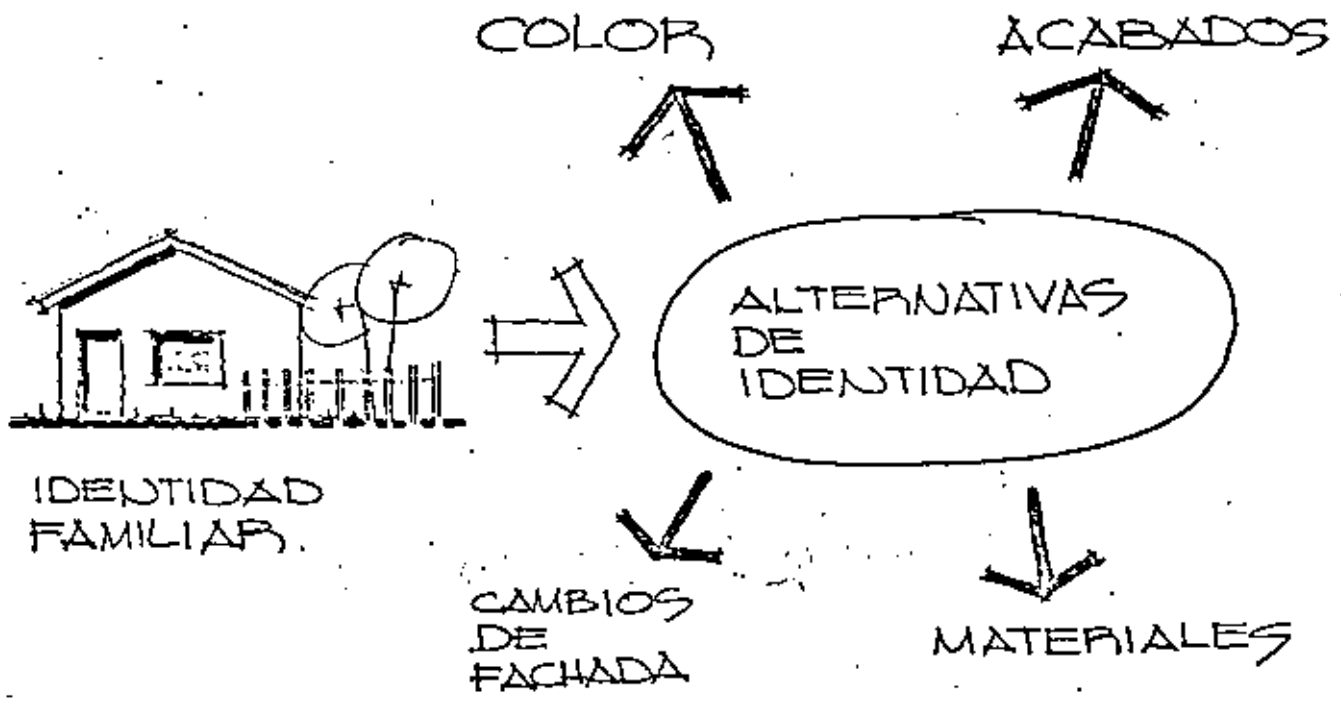 COLOR
ACABADOS
ALTERNATIVAS
DE
IDENTIDAD
IDENTIDAD
FAMILIAR.
CAMBIOS
DE
FACHADA
MATERIALES